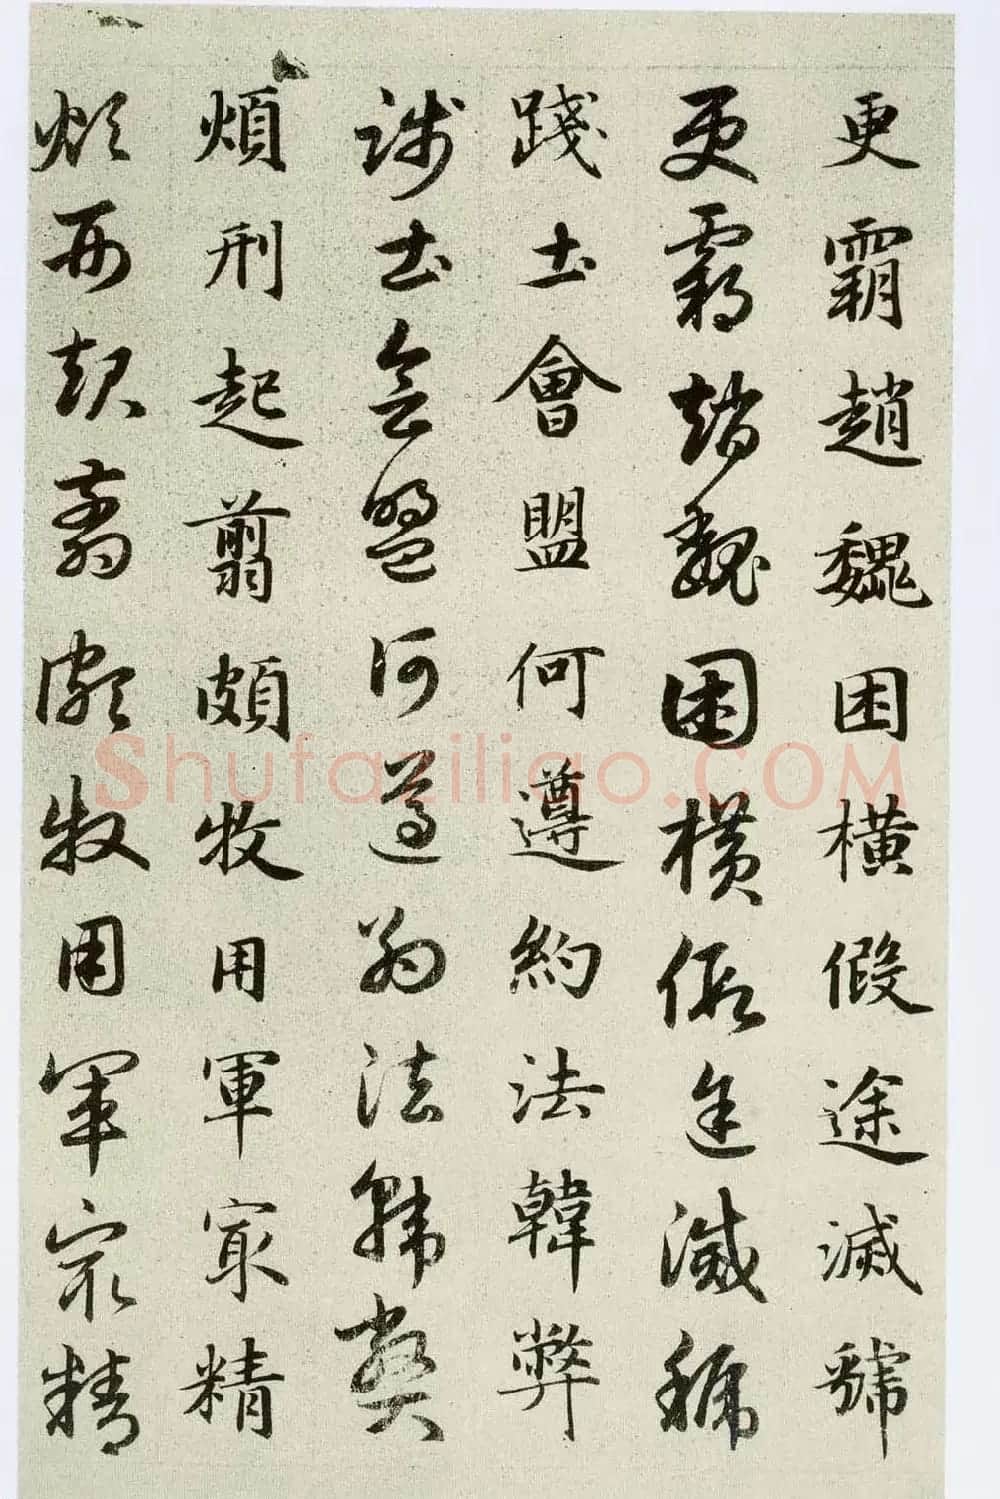 更霸趙魏困橫假途滅虢
更霸趙魏困橫假途滅虢
踐土會盟何遵約法韓弊
踐土會盟何遵約法韓弊
煩刑起翦頗牧用軍冣精
煩刑起翦頗牧用軍冣精
Shufaziliao.COM